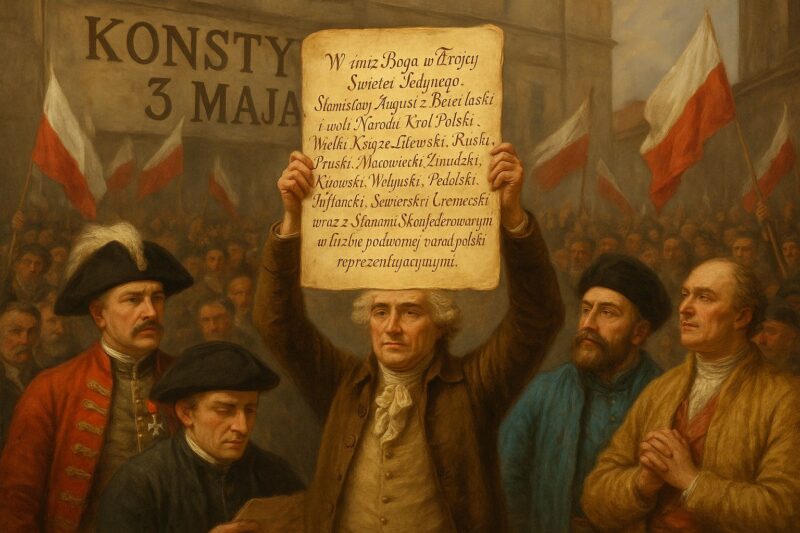 KONSTY
3 MAJA
W imiz Boga w Trojcy
Swietei Jedynego.
Stanislavy Augusi z Beiei laski
i woli Narodu Krol Polski.
Wielki Książe Lilewski, Ruski,
Pruski, Macowiecki, Zinudzki,
Kirowski, Welyuski, Pedolski.
Juftancki, Sewierskri Uremecski
wraz z Stanami Skonfederowarym
w lizbie podwornej varad polski
reprezentujacyuymi.